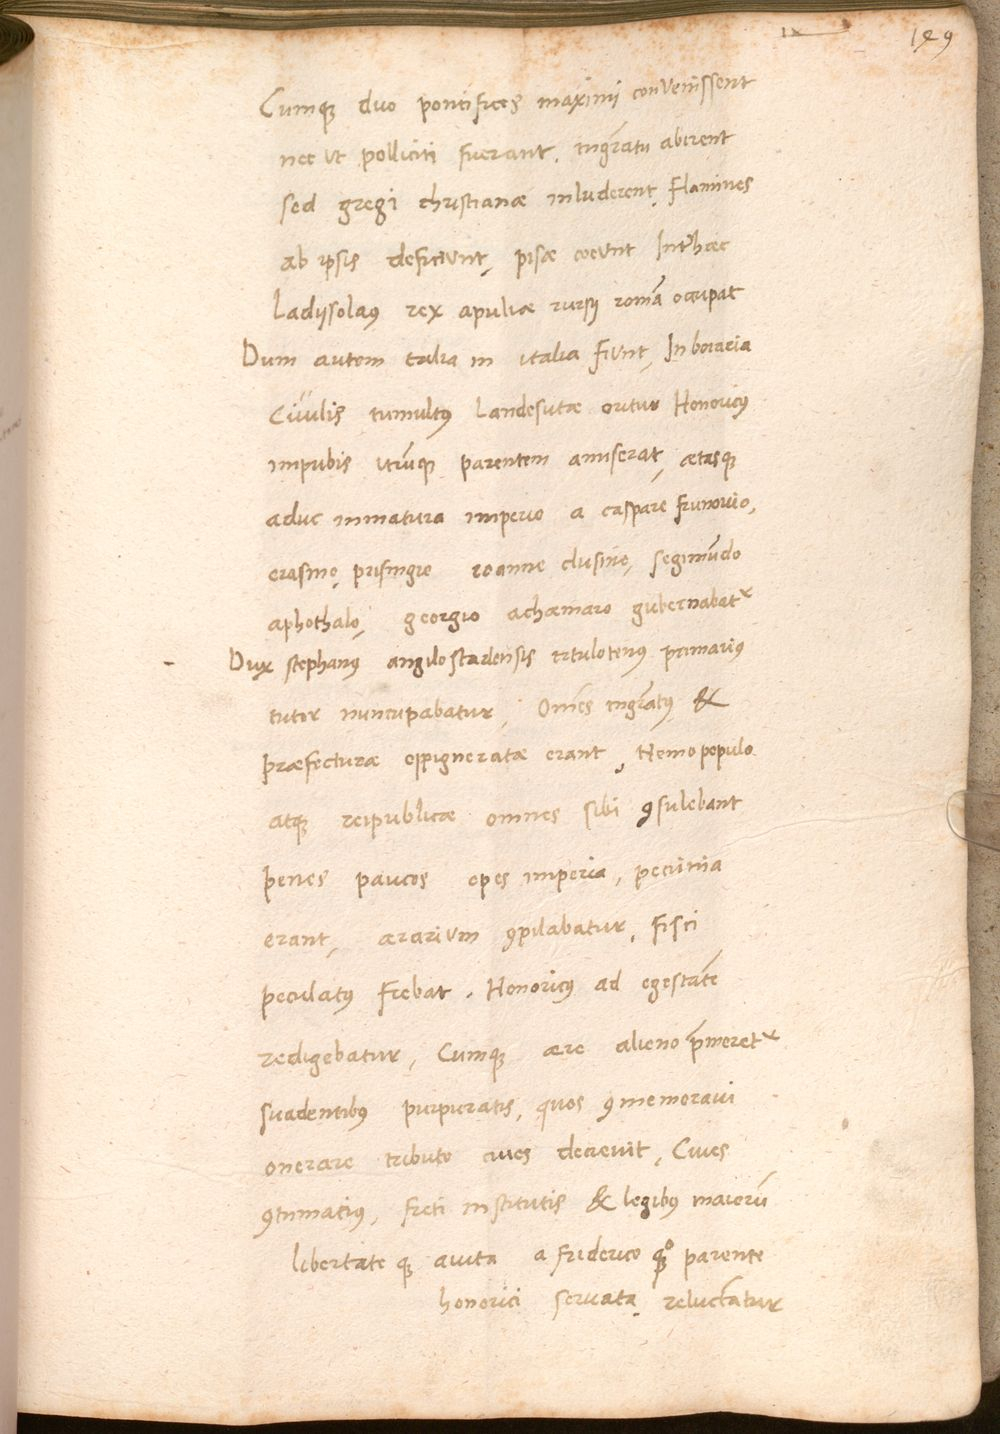 ıx 149
Cumq; duo pontifices maximi convenissent
nec ut polliciti fuerant, ingratu abirent
sed gregi christianæ inluderent, Flamines
ab ipsis deficiunt, pisæ coeunt Int'hæc
Ladijsolaus rex apuliæ rursus romā occupat
Dum autem talia in italia fiunt, In boiaria
Civilis tumultus Landesutæ oritur Honoricus
impubis utrūq; parentem amiserat, ætasq;
aduc inmatura imperio a caspare frunovio,
erasmo prisingio ioanne clusino, segimūdo
aphothalo, georgio achæmaro gubernabatr
Dux stephanus angilostadensis titulotenus primarius
tutor nuncupabatur, Om̄es ingratus &
præfecturæ oppigneratæ erant, Nemo populo
atq; reipublicæ omnes sibi ꝯsulebant
penes paucos opes imperia, pecunia
erant, ærarium ꝯpilabatur, fisci
peculatus fiebat. Honoricus ad egestatē
redigebatur, Cumq; ære alieno p̄meretr
suadentibus purpuratis, quos ꝯmemoravi
onerare tributo cives decrevit, Cives
ꝯtumatius, freti institutis & legibus maiorū
libertate q; avita a friderico parente
honorici servata, reluctatur